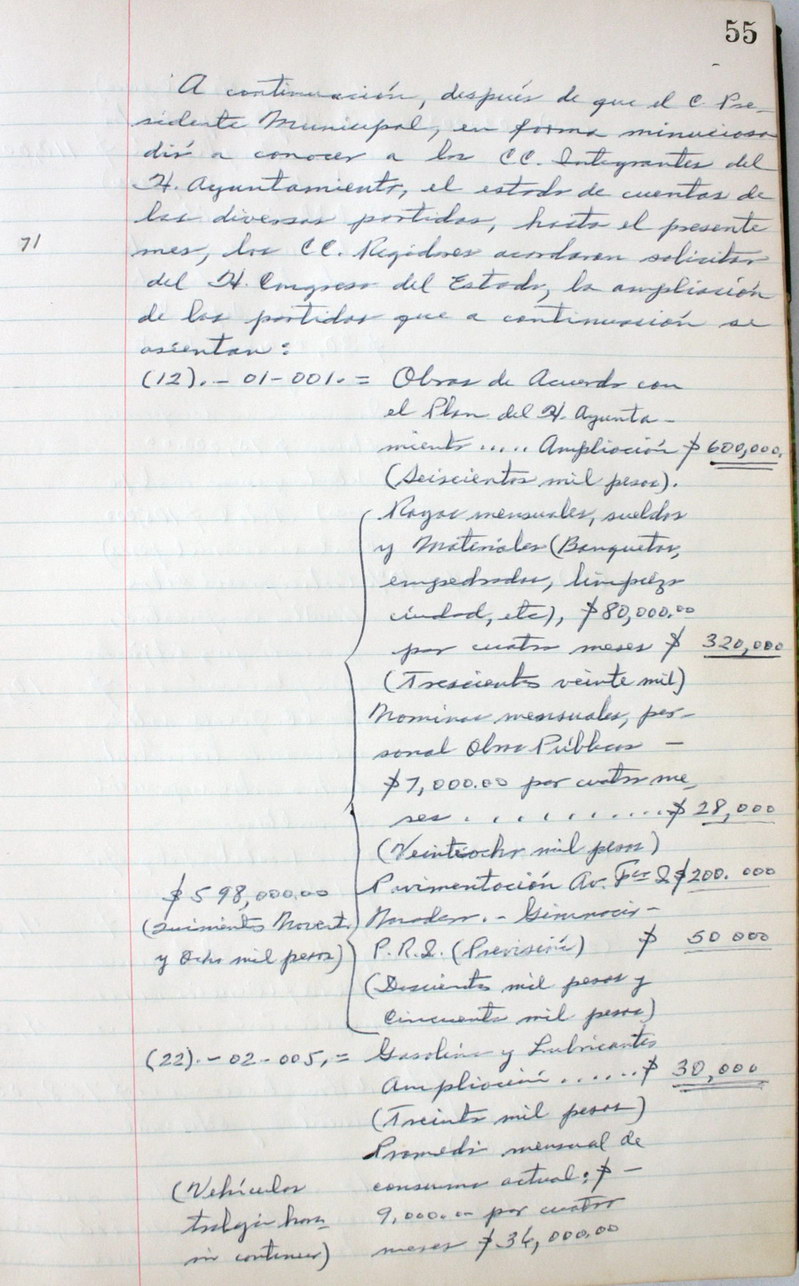 55
A continuación, después de que el C. Pre-
sidente Municipal, en forma minuciosa
dió a conocer a los CC. Integrantes del
H. Ayuntamiento, el estado de cuentas de
las diversas partidas, hasta el presente
71
mes, los CC. Regidores acordaron solicitar
del H. Congreso del Estado, la ampliación
de las partidas que a continuación se
asientan:
(12).- 01-001.= Obras de Acuerdo con
el Plan del H. Ayunta-
miento ..... Ampliación $ 600,000.
(Seiscientos mil pesos).
Rayas mensuales, sueldos
y Materiales (Banquetas,
empedrados, limpieza
ciudad, etc), $80,000.00
por cuatro meses $ 320,000
(Trescientos veinte mil)
Nominas mensuales, per-
sonal Obras Públicas -
$7,000.00 por cuatro me-
ses . . . . . . . . . . . $ 28,000
(Veintiocho mil pesos)
Pavimentación Av. Fco I $200. 000
Madero. - Gimnasio -
P.R.I. (Previsión) $ 50 000
(Doscientos mil pesos y
Cincuenta mil pesos)
$598,000.00
(quinientos Novent.
y Ocho mil pesos)
(22).- 02-005.= Gasolina y Lubricantes
Ampliación ...... $ 30,000
(Treinta mil pesos)
Promedi mensual de
consumo actual: $ -
9,000.00 por cuatro
meses $36,000.00
(Vehículos
trabajan horas
sin contener)